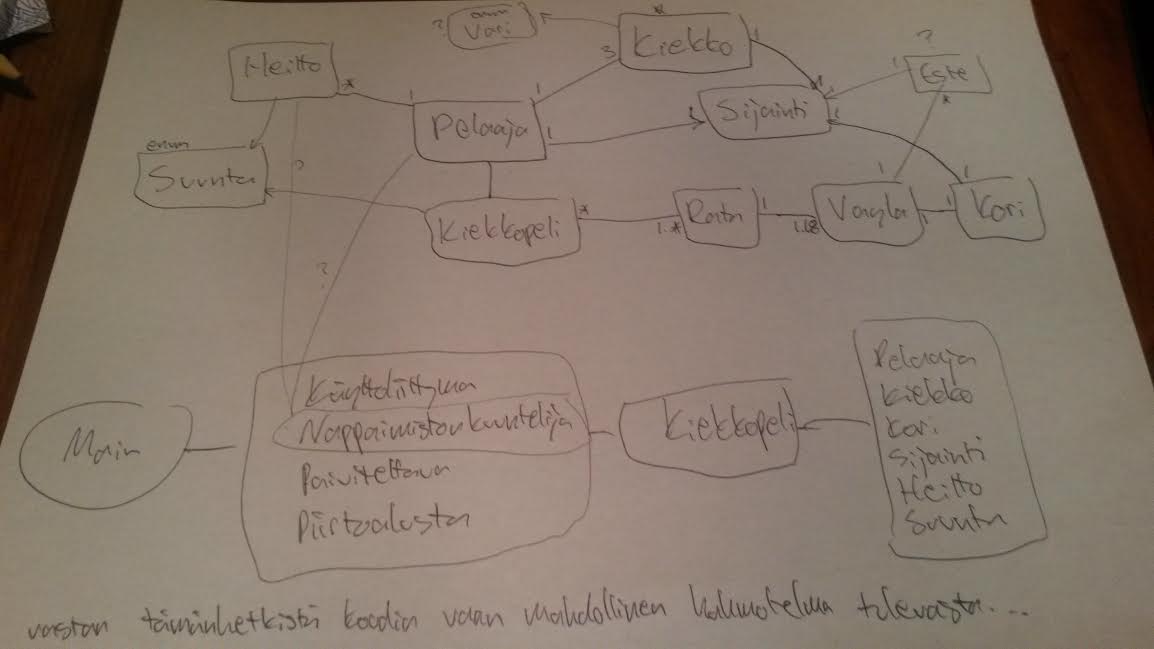 enum
? Vari
*
Kiekko
1
3
?
Heitto
*
1
1
Pelaaja
1
Sijainti
1
1
Este
*
enum
Suunta
?
Kiekkopeli
*
1..*
Rata
1
1..18
1
Väylä
1
1
Kori
?
Main
Käyttöliittymä
Näppäimistönkuuntelija
Päivitettävä
Piirtoalusta
Kiekkopeli
Pelaaja
Kiekko
Kori
Sijainti
Heitto
Suunta
vastaa tämänhetkistä koodia vaan mahdollinen hahmotelma tulevasta....